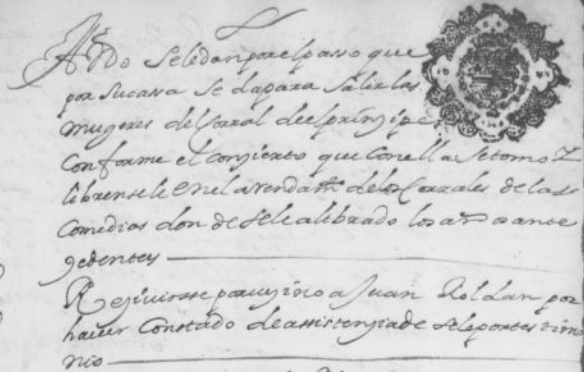 se le dan por el passo que
por su cassa se da para salir las
mugeres del Corral de el prinzipe
Conforme el conzierto que con ella se tomo y
librensele en el arrendam.to de los Corrales de las
Comedias don de se le a librado los a os ante
zedentes
Reziviosse por vezino a Juan Roldan por
haver Constado de assistenzia de
nio